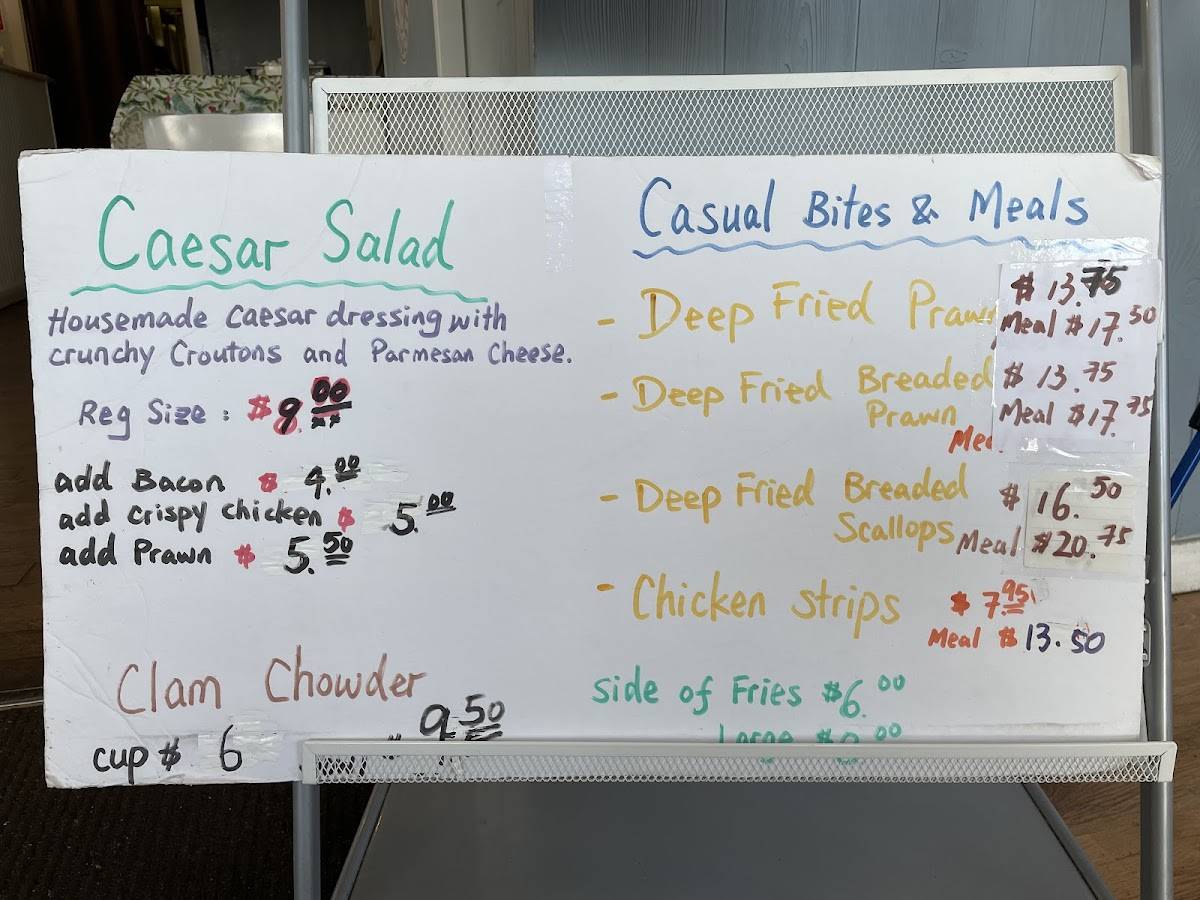 Caesar Salad
Housemade Caesar dressing with
crunchy Croutons and Parmesan Cheese.
Reg Size : $9.00
add Bacon $ 4.00
add crispy chicken $ 5.00
add Prawn $ 5.50
Clam Chowder
cup $ 6
9.50
Casual Bites & Meals
- Deep Fried Prawn $ 13.75
Meal $17.50
- Deep Fried Breaded $ 13.75
Prawn Meal $17.75
- Deep Fried Breaded $ 16.50
Scallops Meal $20.75
- Chicken strips $ 7.95
Meal $13.50
side of Fries $6.00
Large